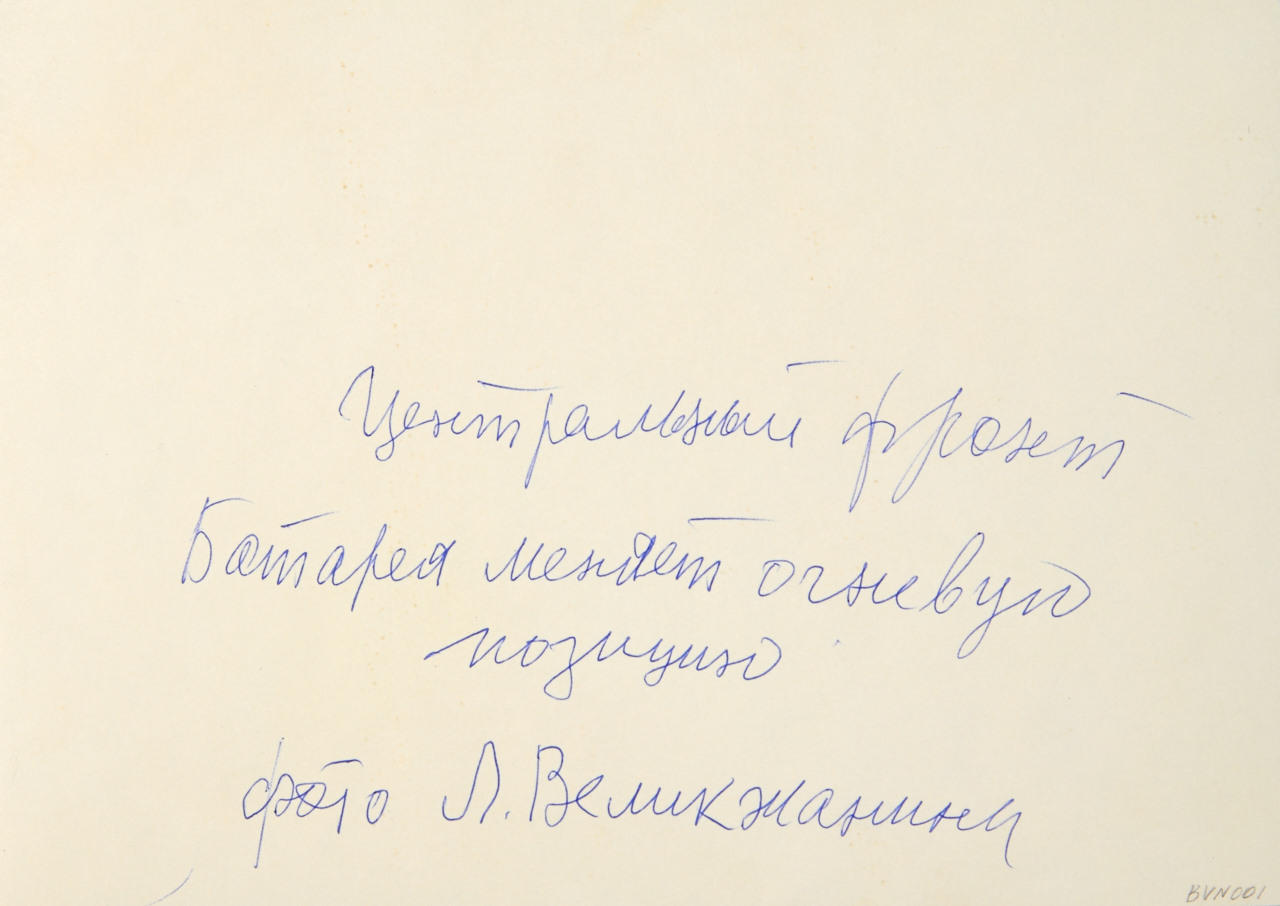 Центральный фронт
Батарея меняет огневую
позицию
фото Л. Великжанина
BVN001